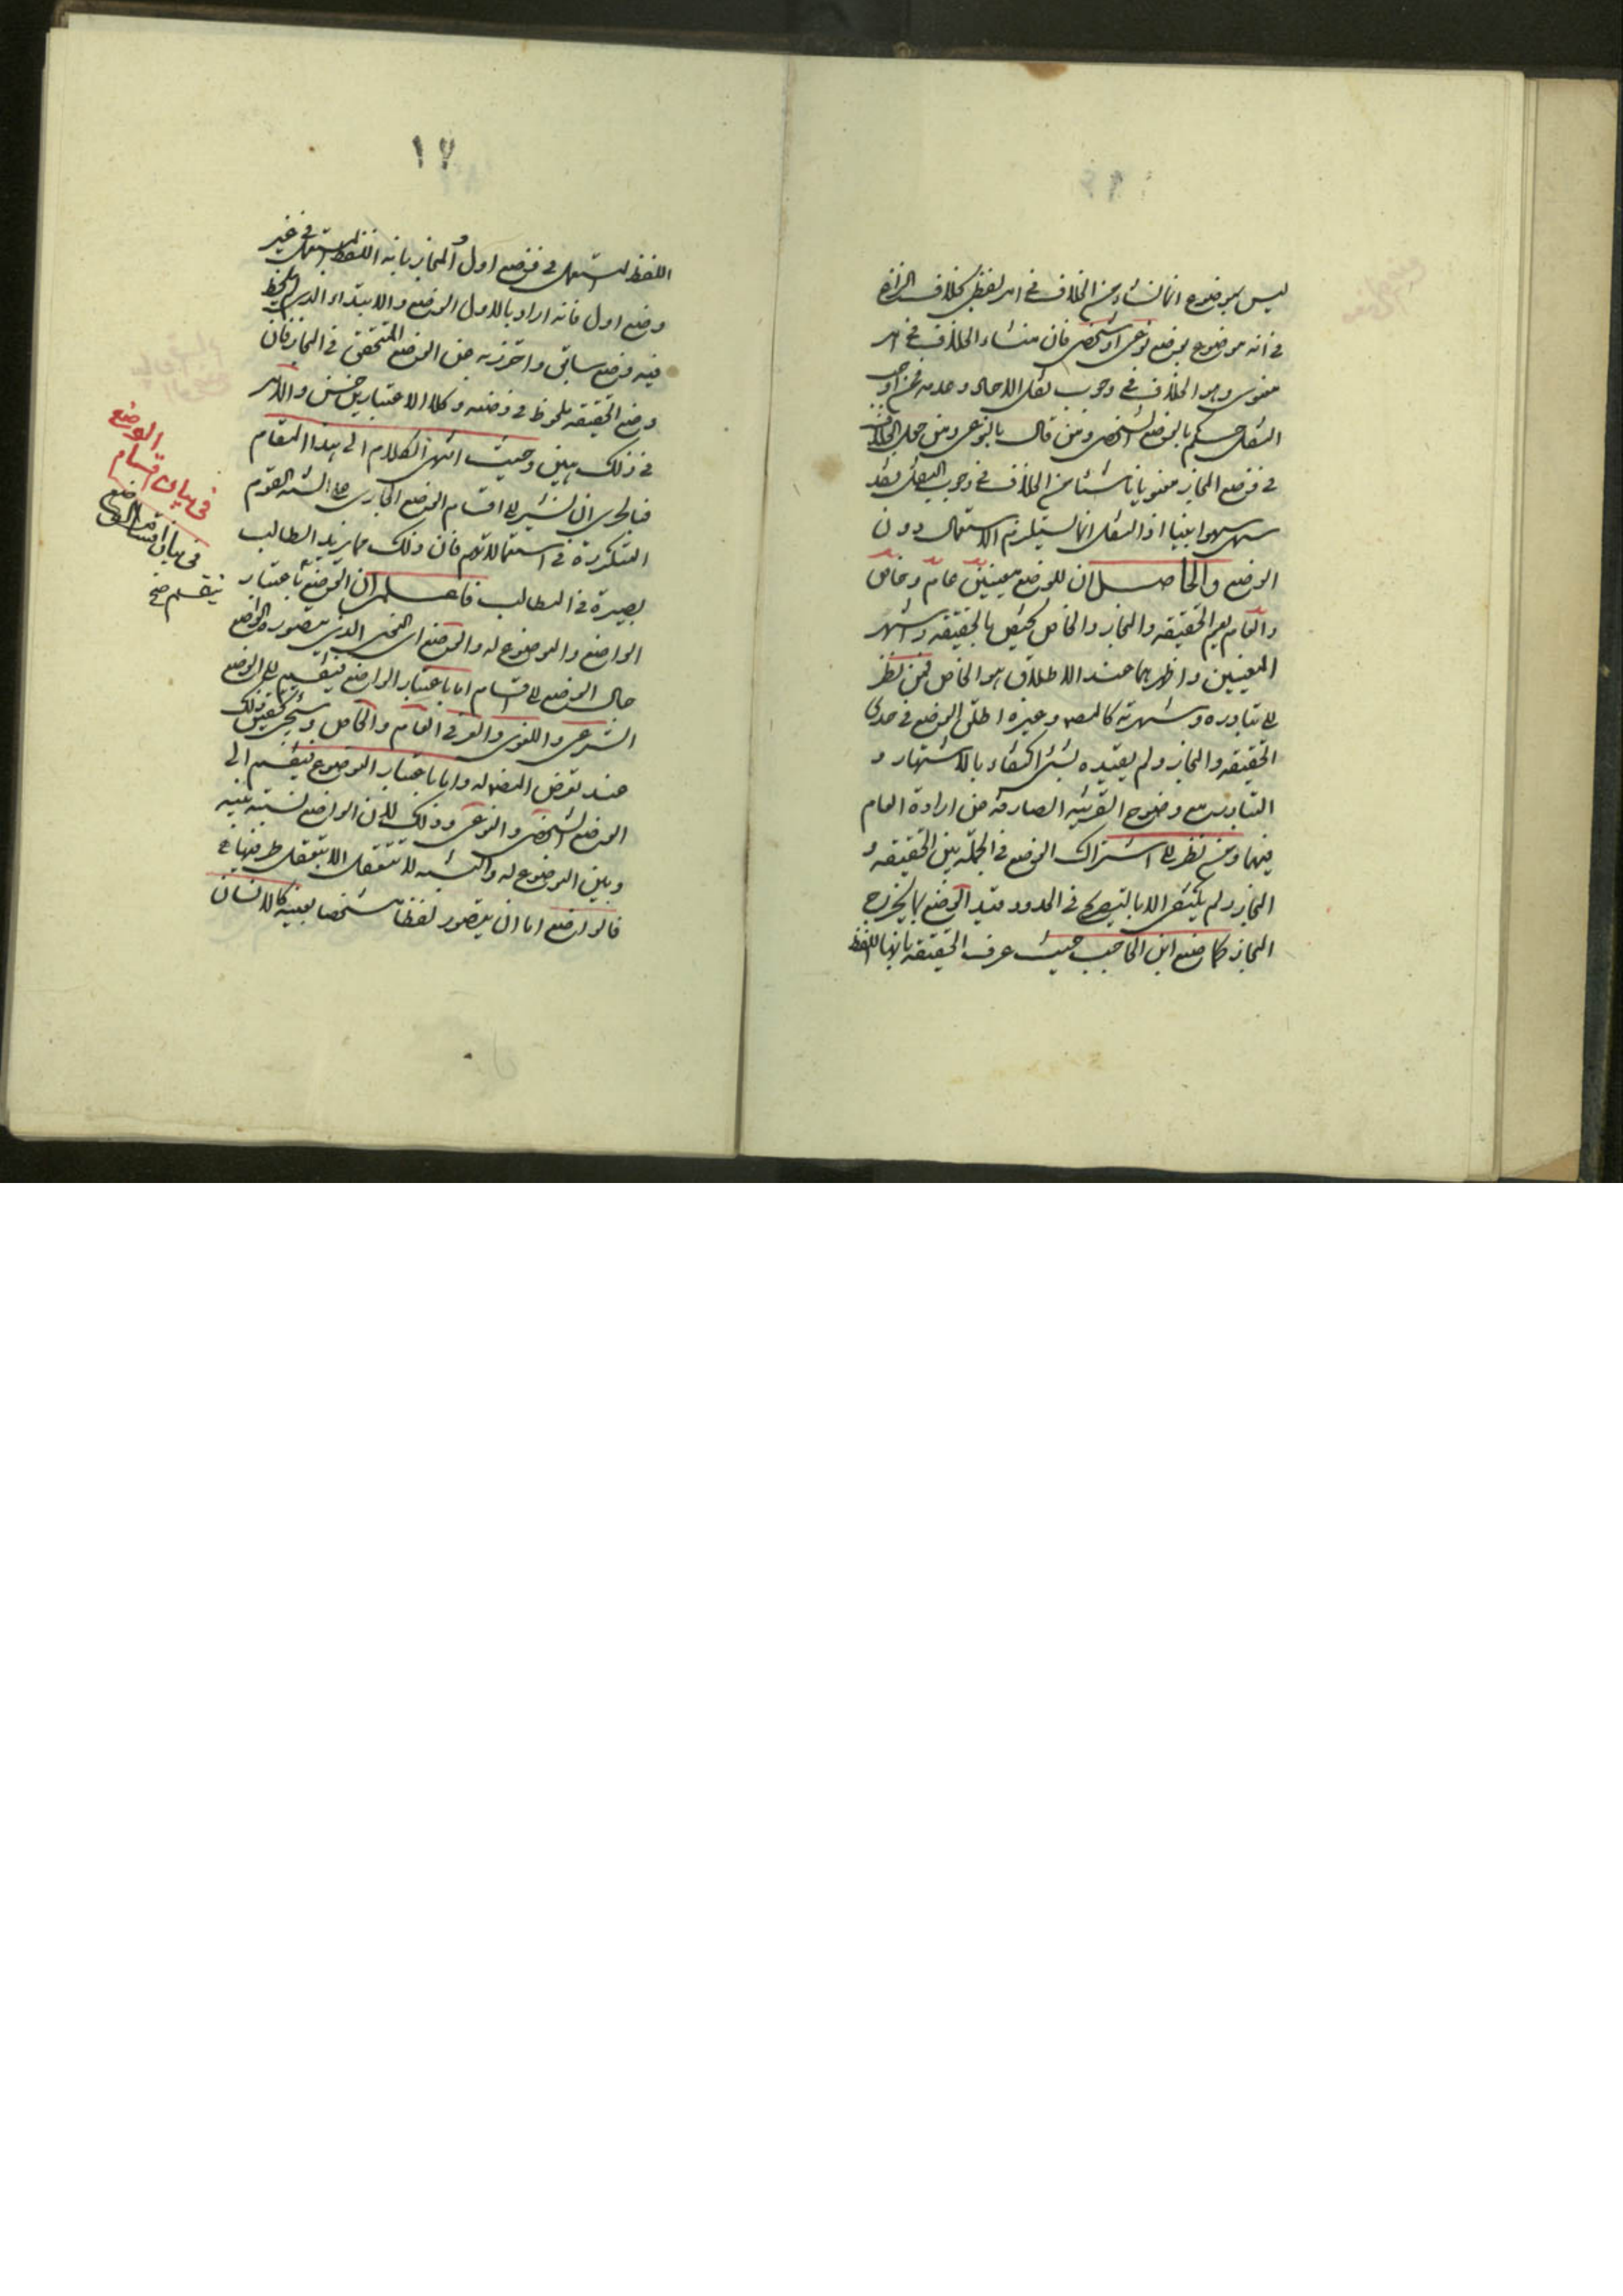 ليس بموضوع انما نشاء من الخلاف في امر لفظي بخلاف النزاع
في انه موضوع بوضع نوعي او شخصي فان منشاء الخلاف في امر
معنوي وهو الخلاف في وجوب نقل الاحاد وعدمه فمن اوجب
النقل حكم بالوضع الشخصي ومن قال بالنوعي ومن جعل الخلاف
في وضع المجاز معنويا ناشئا من الخلاف في وجوب النقل فقد
سهى سهوا بينا اذ النقل انما يستلزم الاستعمال دون
الوضع والحاصل ان للوضع معنيين عام وخاص
والعام يعم الحقيقة والمجاز والخاص يختص بالحقيقة واشهر
المعنيين واظهرهما عند الاطلاق هو الخاص فمن نظر
الى تبادره وشهرته كالمصـ وغيره اطلق الوضع في حدي
الحقيقة والمجاز ولم يقيده بشئ اكتفاء بالاشتهار و
التبادر مع وضوح القرينة الصارفة عن ارادة العام
فيهما ومن نظر الى اشتراك الوضع في الجملة بين الحقيقة و
المجاز ولم يكتف الا بالتصريح في الحدود قيد الوضع بما يخرج
المجاز كما صنع ابن الحاجب حيث عرف الحقيقة بانها اللفظ
١٧
اللفظ المستعمل في وضع اول والمجاز بانه اللفظ المستعمل في غير
وضع اول فانه اراد بالاول الوضع والابتداء الذي لم يلحظ
فيه وضع سابق واحترز به عن الوضع المتحقق في المجاز فان
وضع الحقيقة ملحوظ في وضعه وكلا الاعتبارين حسن والامر
في ذلك هين وحيث انتهى الكلام الى هذا المقام
فبالحري ان نشير الى اقسام الوضع الجاري على السنة القوم
المتكررة في استعمالاتهم فان ذلك مما يزيد الطالب
بصيرة في المطالب فاعلم ان الوضع باعتبار
الواضع والموضوع له والوضع اي النحو الذي يتصوره الواضع
حال الوضع الى اقسام اما باعتبار الواضع فينقسم الى الوضع
الشرعي واللغوي والعرفي العام والخاص وسيجئ تحقيق ذلك
عند تعرض المصـ له واما باعتبار الموضوع فينقسم الى
الوضع الشخصي والنوعي وذلك لان الواضع نسبته بينه
وبين الموضوع له والنسبة لا تتعقل الا بتعقل طرفيها
فالواضع اما ان يتصور لفظا شخصا بعينه كالانسان
في بيان اقسام
الوضع
في بيان اقسام الوضع
ينقسم صح